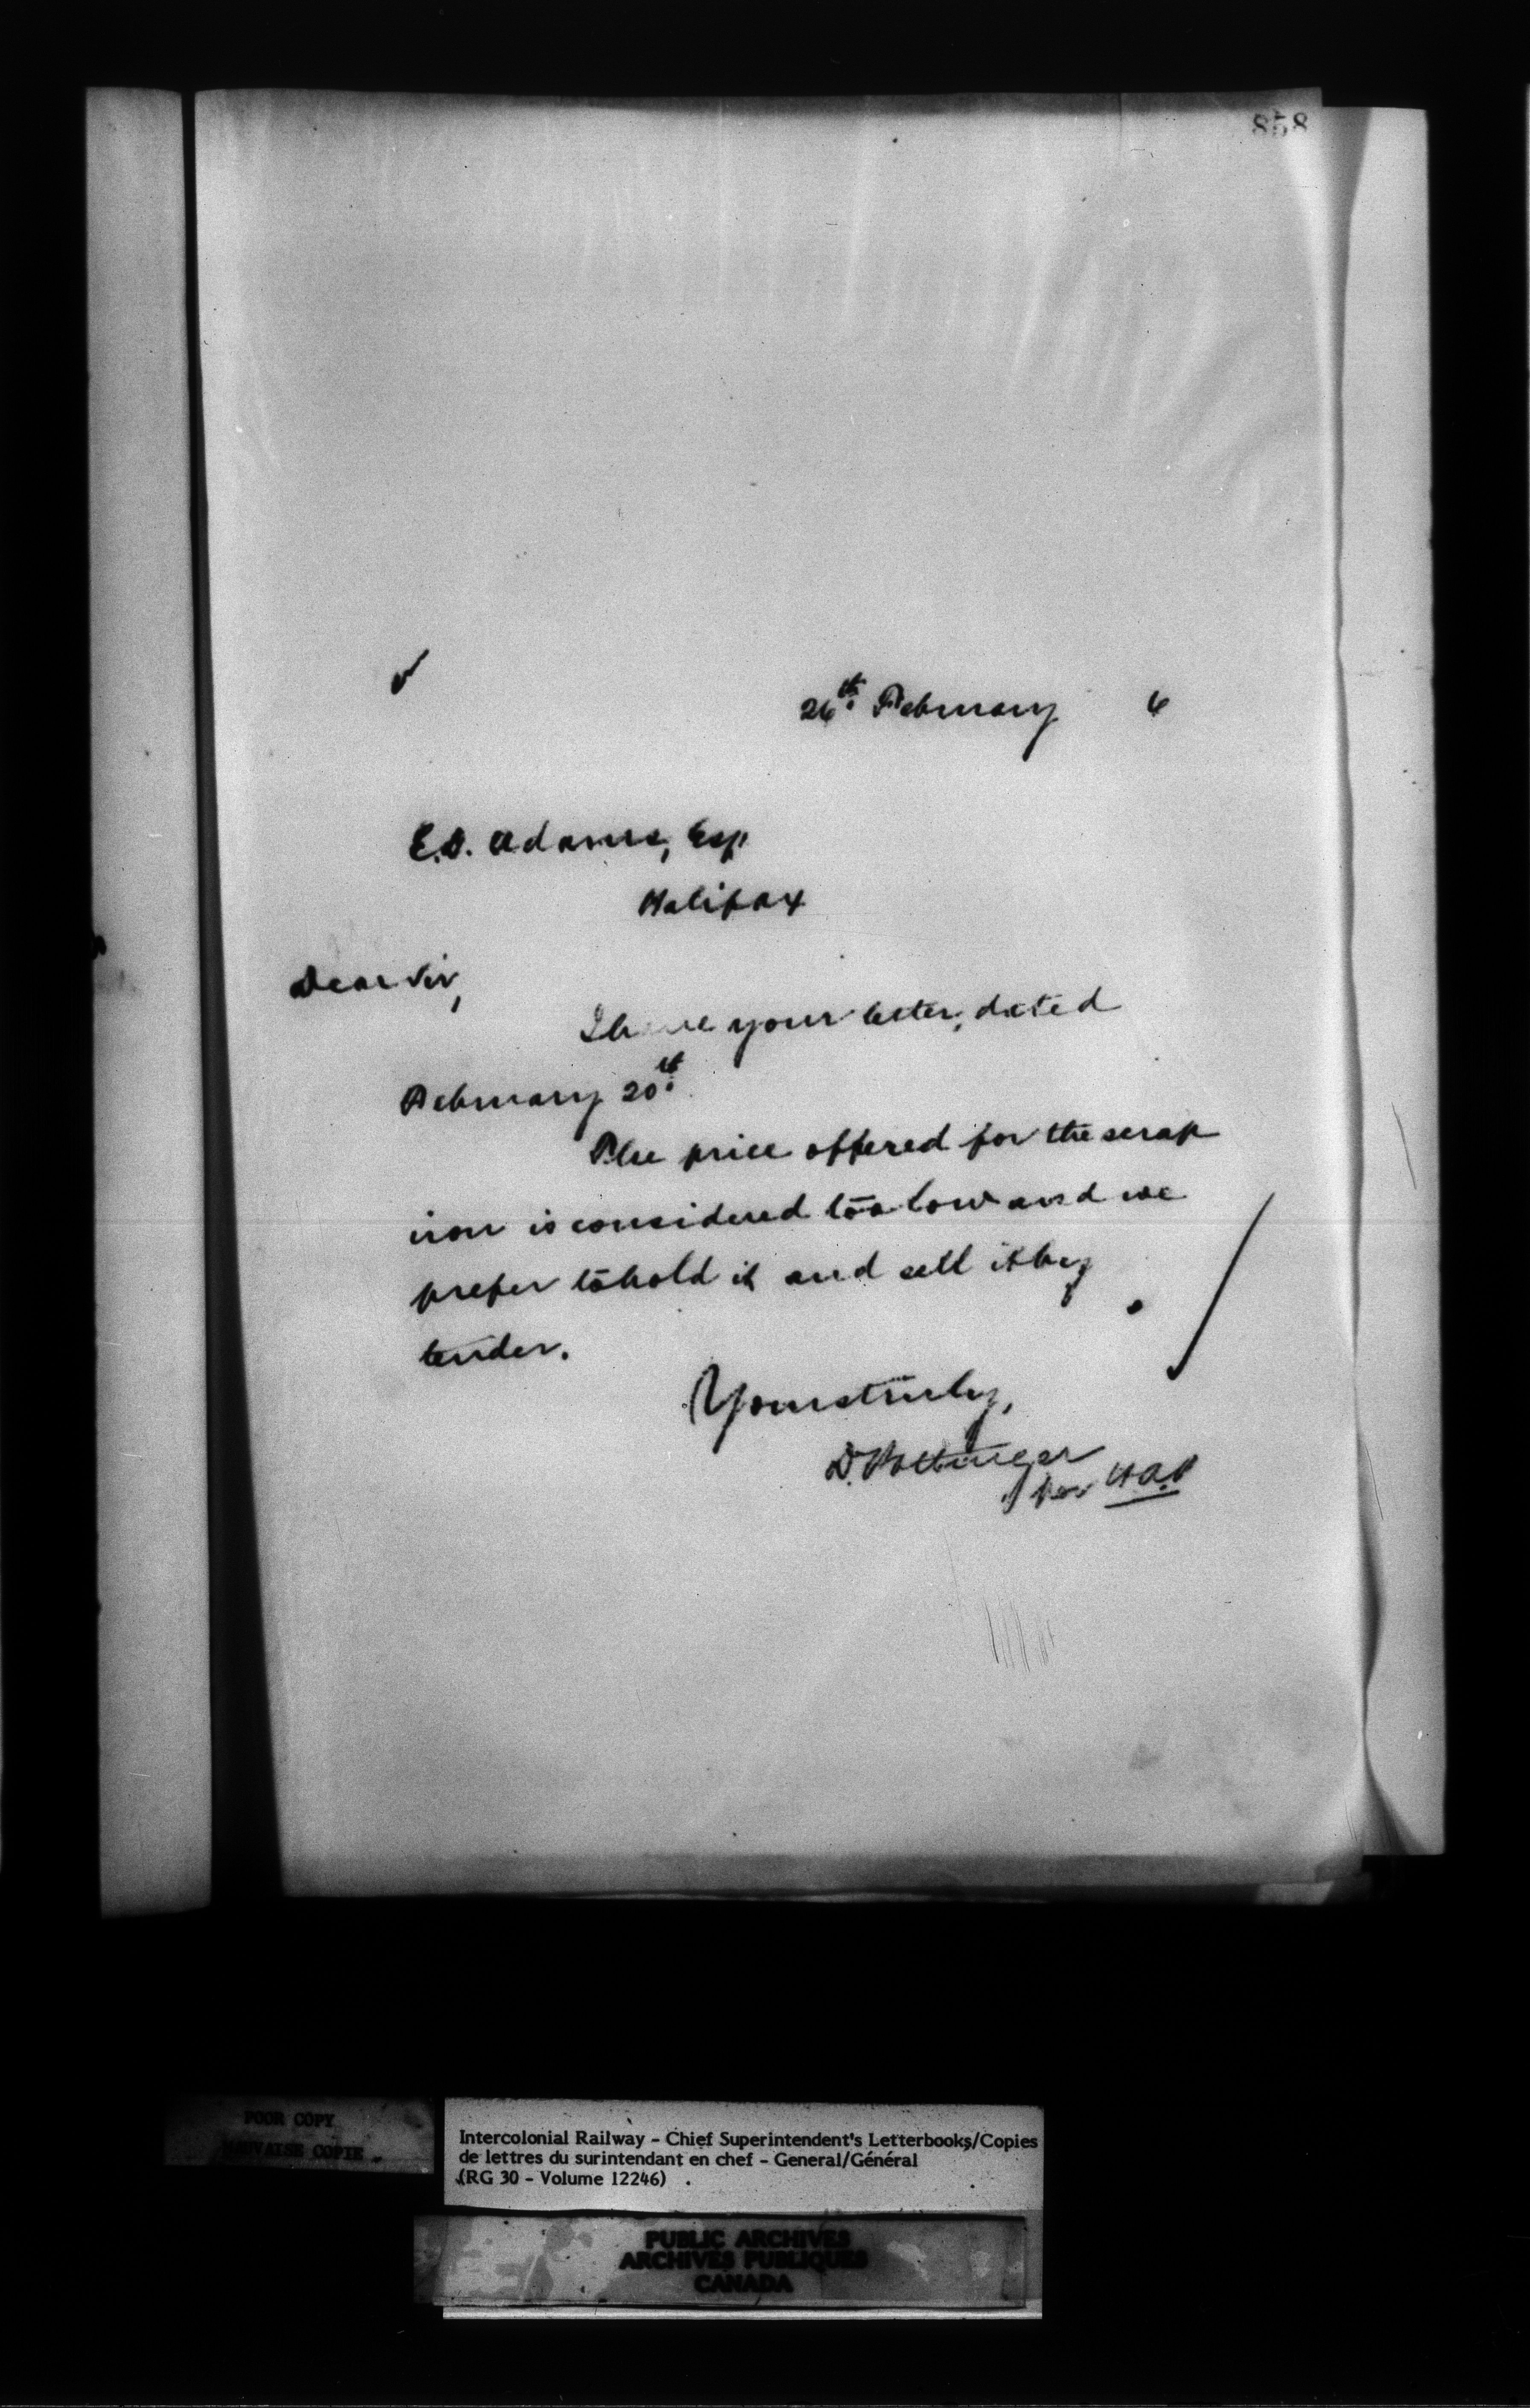 858
26th February 6
E.D. Adams, Esq
Halifax
Dear Sir,
I have your letter, dated
February 20th.
The price offered for the scrap
iron is considered too low and we
prefer to hold it and sell it by
tender.
Yours truly,
D. Pottinger
per
POOR COPY
MAUVAISE COPIE
Intercolonial Railway - Chief Superintendent's Letterbooks/Copies
de lettres du surintendant en chef - General/Général
(RG 30 - Volume 12246) .
PUBLIC ARCHIVES
ARCHIVES PUBLIQUES
CANADA